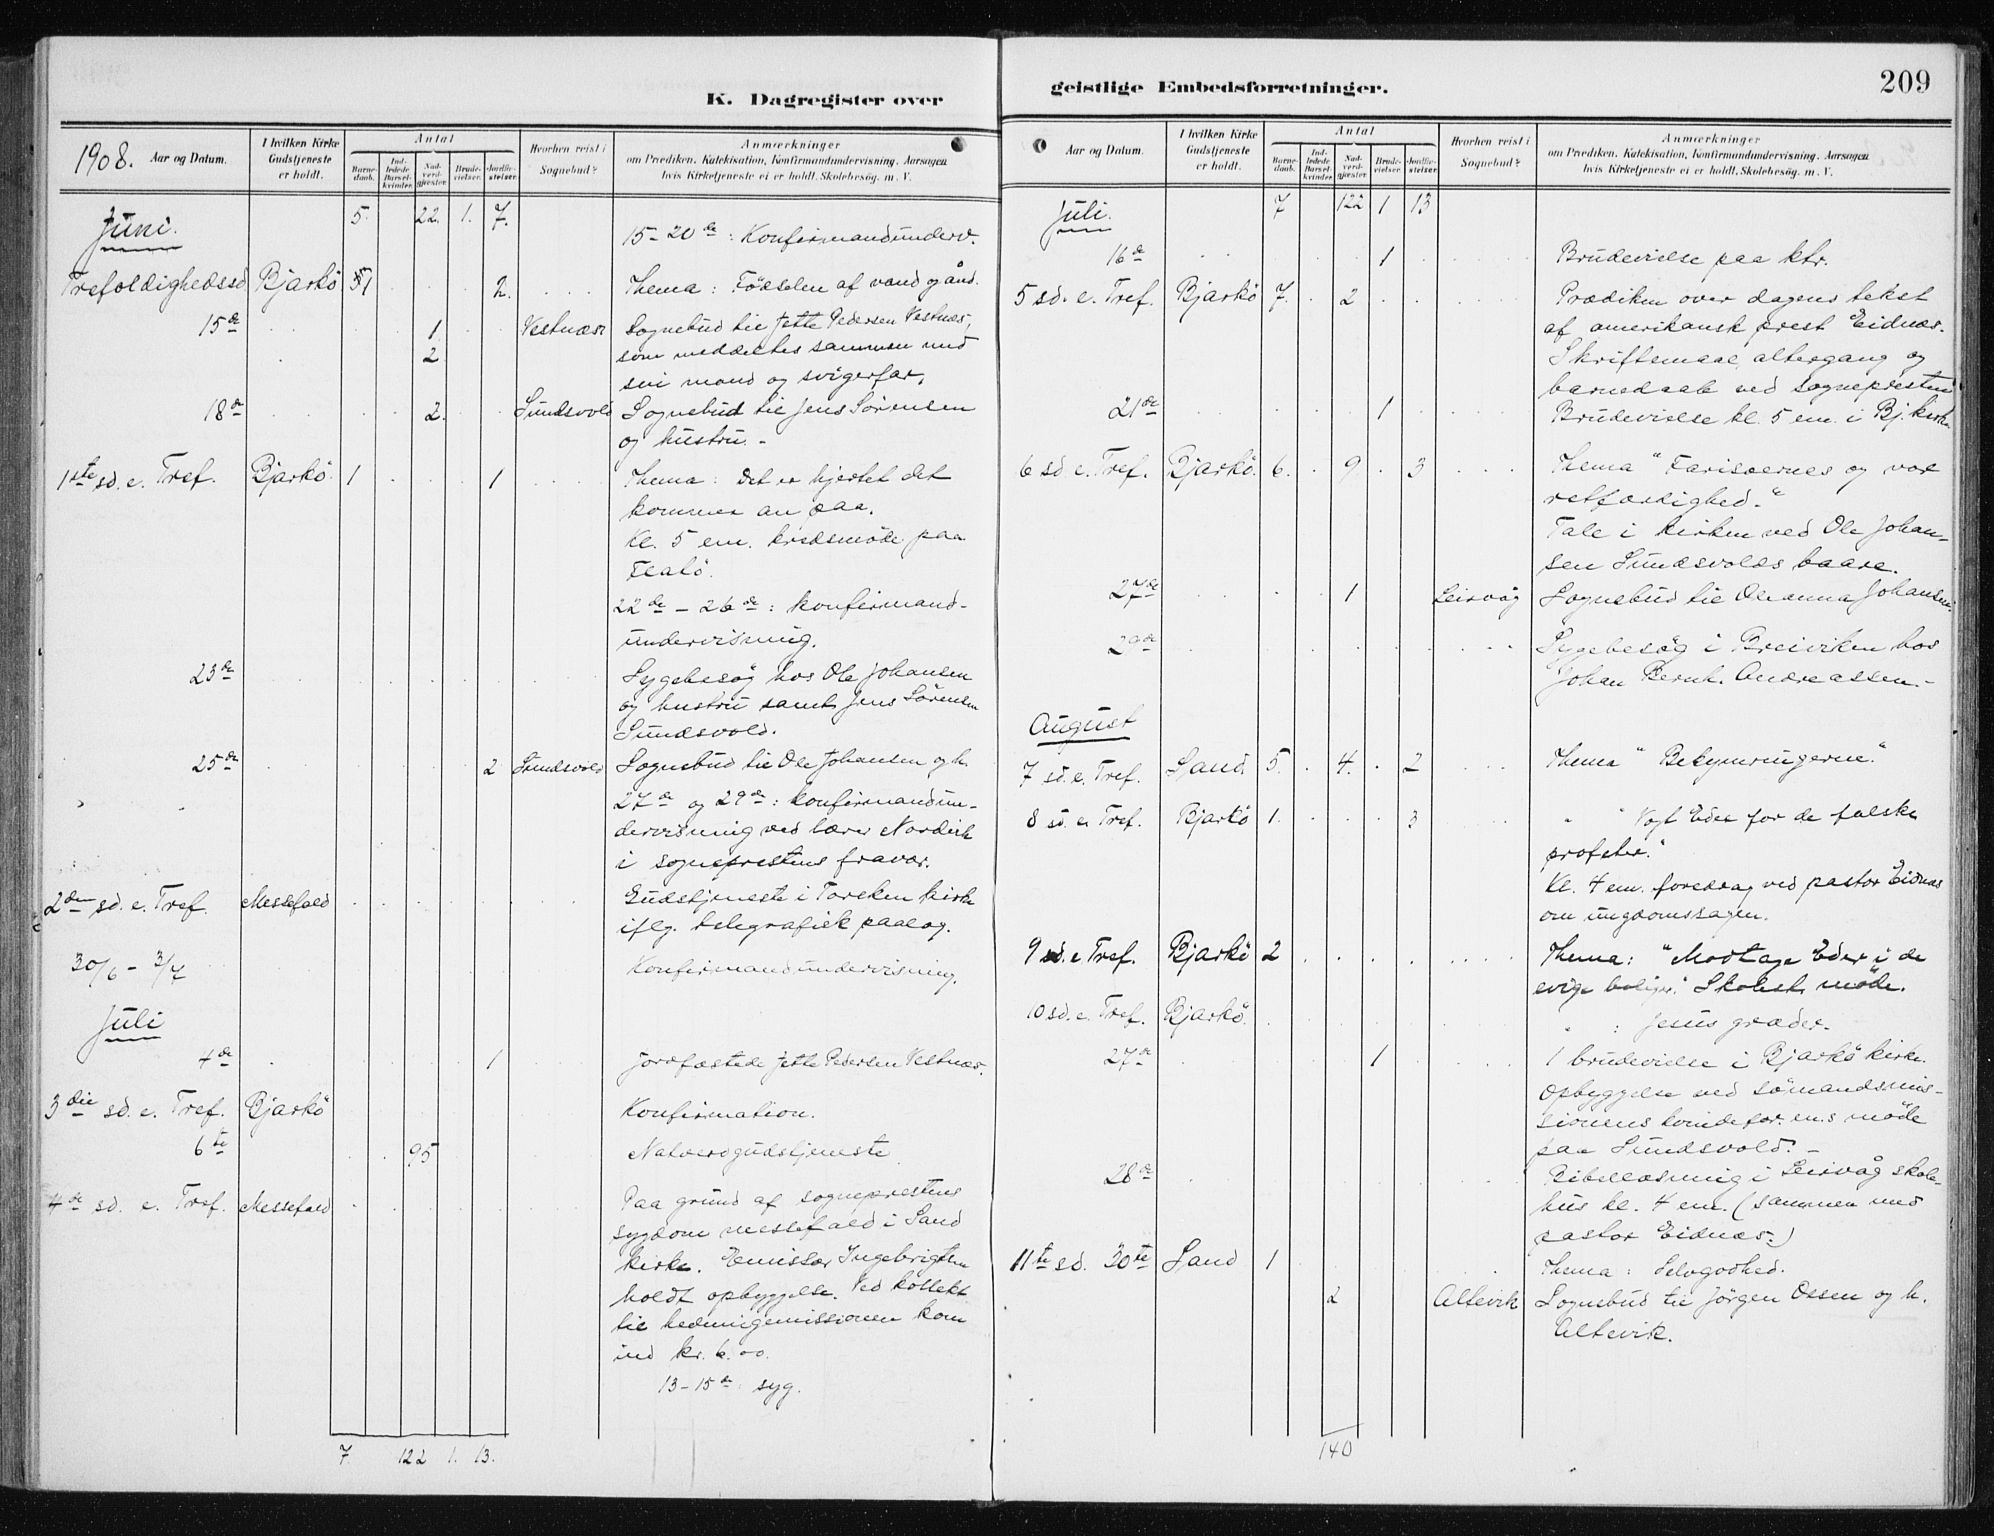 K. Dagregister over
1908. Aar og Datum.
I hvilken Kirke Gudstjeneste er holdt.
Antal
Barnedaab.
Indledede Barselkvinder.
Nadverdgjæster.
Brudevielser.
Jordfæstelser.
Hvorhen reist i Sognebud?
Anmærkninger
om Prædiken, Katekisation, Konfirmandundervisning, Aarsagen
hvis Kirketjeneste ei er holdt, Skolebesøg, m. V.
Juni. 5. 22. 1. 7.
15-20de: Konfirmandunderv.
Trefoldighedssd Bjarkö 1 2. Thema: Födselen af vand og ånd.
15de 1 Vestnæs Sognebud til Jette Pedersen Vestnæs,
2 som meddeltes sammen med
sin mand og svigerfar.
18de 2. Sundsvold Sognebud til Jens Sörensen
og hustru.-
1ste sd. e. Tref. Bjarkö 1 1 Thema: Det er hjertet det
kommer an paa.
Kl. 5 em. kredsmöde paa
Flatö.
22de - 26de: konfirmand-
undervisning.
23de Sygebesög hos Ole Johansen
og hustru samt Jens Sörensen
Sundsvold.
25de 2 Sundsvold Sognebud til Ole Johansen og h.
27de og 29de: konfirmandun-
dervisning ved lærer Nordvik
i sogneprestens fravær.
2den sd. e. Tref. Messefald Gudstjeneste i Torsken kirke
iflg. telegrafisk paalæg.
30/6 - 3/7 Konfirmandundervisning.
Juli
4de 1 Jordfæstede Jette Pedersen Vestnæs.
3die sd. e. Tref. Bjarkö Konfirmation.
6te 95 Natverdgudstjeneste
4de sd. e. Tref. Messefald Paa grund af sogneprestens
sygdom messefald i Sand
kirke. Emissær Ingebrigtsen
holdt opbyggelse. Ved kollekt
til hedningemissionen kom
ind kr. 6.00.
13-15de syg.
7. 122 1. 13.
geistlige Embedsforretninger.
209
Aar og Datum.
I hvilken Kirke Gudstjeneste er holdt.
Antal
Barnedaab.
Indledede Barselkvinder.
Nadverdgjæster.
Brudevielser.
Jordfæstelser.
Hvorhen reist i Sognebud?
Anmærkninger
om Prædiken, Katekisation, Konfirmandundervisning, Aarsagen
hvis Kirketjeneste ei er holdt, Skolebesøg, m. V.
Juli. 7 122 1 13
16de 1 Brudevielse paa ktr.
5 sd. e. Tref. Bjarkö 7. 2 Prædiken over dagens tekst
af amerikansk prest Eidnæs.
Skriftemaal, altergang og
barnedaab ved sognepresten
21de 1 Brudevielse kl. 5 em. i Bj. kirke
6 sd. e. Tref. Bjarkö. 6. 9 3 Thema "Farisæernes og vor
retfærdighed."
Tale i kirken ved Ole Johan-
sen Sundsvolds baare.
27de 1 Leirvåg Sognebud til Oleanna Johansen.
29de Sygebesög i Breiviken hos
Johan Bernh. Andreassen.-
August
7 sd. e. Tref. Sand 5. 4. 2 Thema "Bekymringerne".
8 sd. e. Tref. Bjarkö 1. 3 " "Vogt Eder for de falske
profeter."
Kl. 4 em. foredrag ved pastor Eidnæs
om ungdomssagen.
9 sd. e Tref. Bjarkö 2 Thema: "Modtage Eder i de
evige boliger." Skolest. möde.
10 sd. e. Tref. Bjarkö. " : Jesus græder.
27de 1 1 brudevielse i Bjarkö kirke.
Opbyggelse ved sömandsmis-
sionens kvindefor.ens möde
paa Sundsvold.-
28de Bibellæsning i Leirvåg skole-
hus kl. 4 em. (sammen med
pastor Eidnæs.)
11te sd. 30te Sand 1 Thema: Selvgodhed.
2 Altevik Sognebud til Jörgen Olsen og h.
Altevik.
140